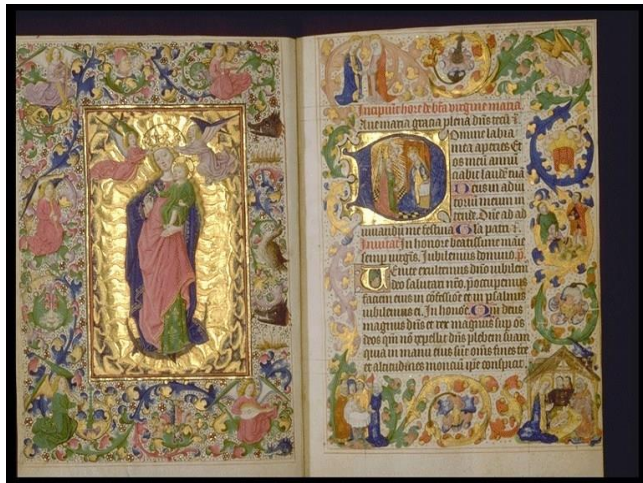 Incipiunt hore de bta virgine maria.
Ave maria gracia plena dñs tecũ
Domine labia
mea aperies Et
os meũ annũ
ciabit laudẽ tuã
Deus in adiu
toriũ meum in
tende. Dñe ad ad
iuvandũ me festina Gla patri
Invitat In honore beatissime marie
semp virgĩs. Jubilemus domino. p̄.
Venite exultemus dño iubilem
deo salutari nr̃o. p̄ocupemus
faciem eius in cõfessiõe et in psalmis
iubilemus ei. In honore Qm̃ deus
magnus dñs et rex magnus sup õs
deos qm̃ nõ repellet dñs plebem suam
quia in manu eius sũt om̃s fines tre
et altitudines monciũ ip̃e conspicit.